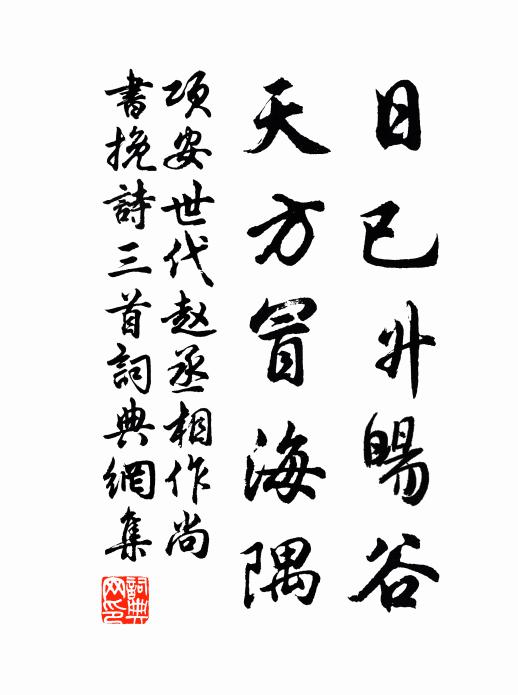 日已升暘谷
天方冒海隅
项安世代赵丞相作尚
書挽詩三首詞典網集
詞典网印